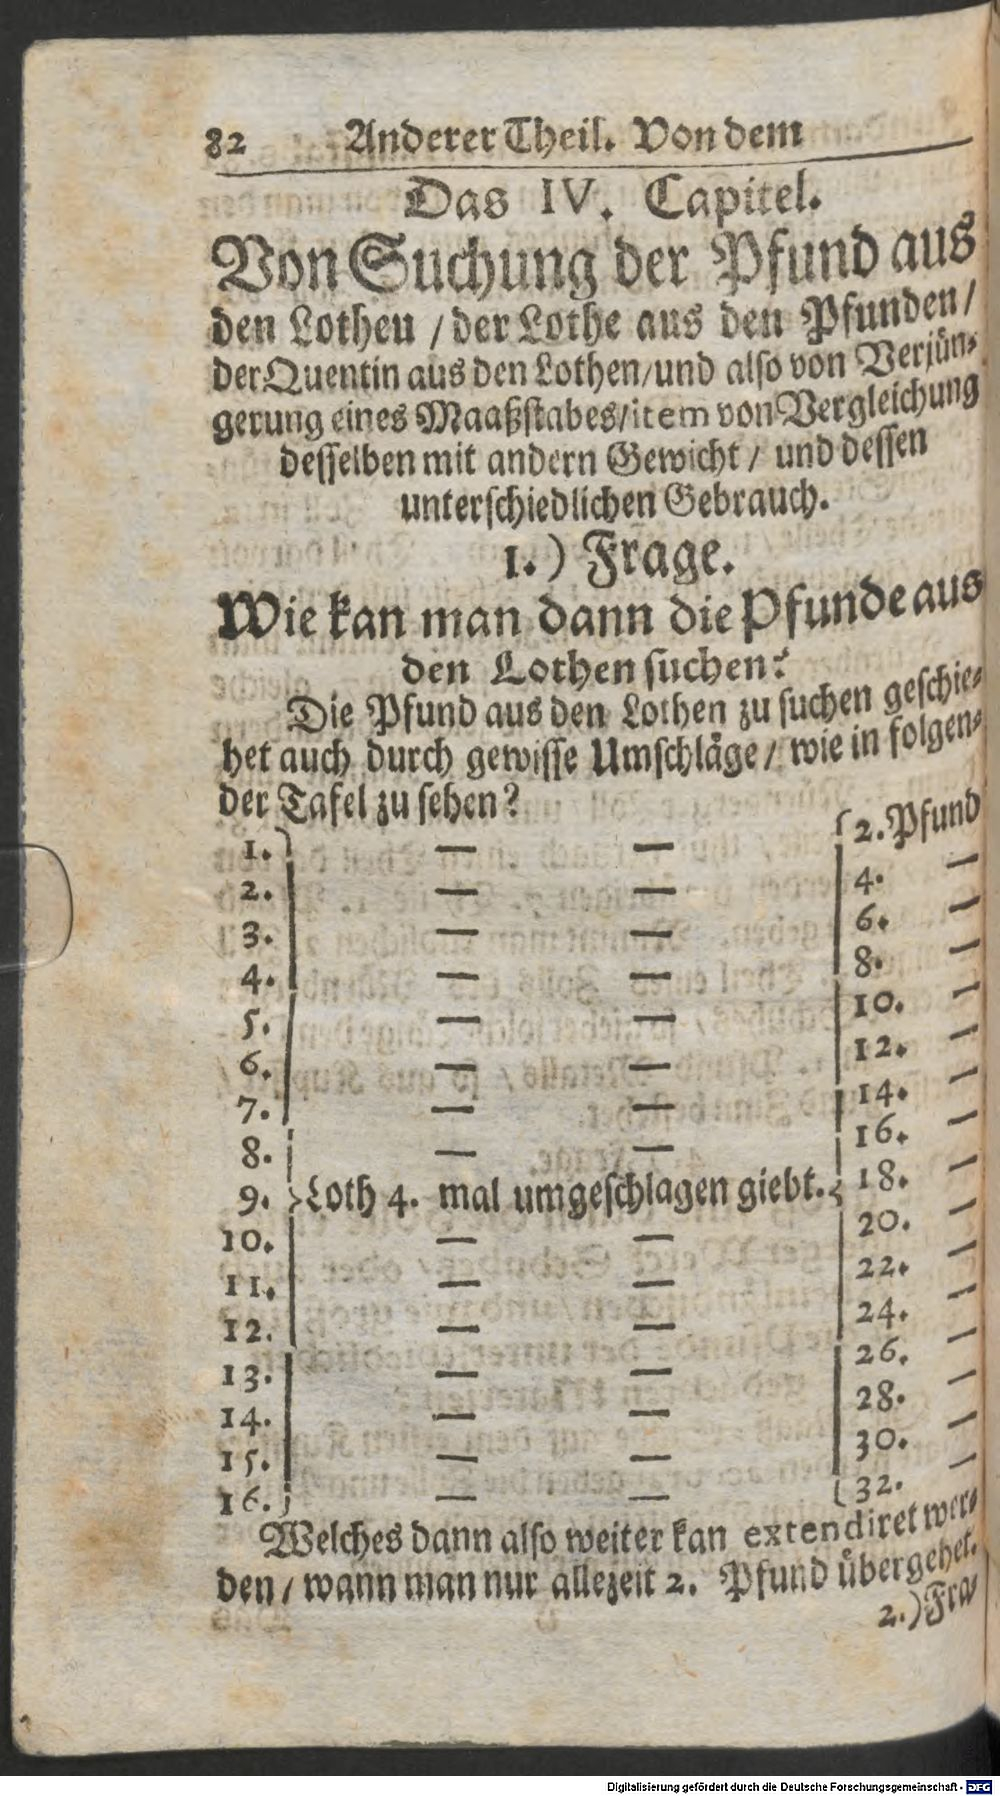 82 Anderer Theil. Von dem
Das IV. Capitel.
Von Suchung der Pfund aus
den Lotheu / der Lothe aus den Pfunden /
der Quentin aus den Lothen / und also von Verjün-
gerung eines Maaßstabes / item von Vergleichung
desselben mit andern Gewicht / und dessen
unterschiedlichen Gebrauch.
1.) Frage.
Wie kan man dann die Pfunde aus
den Lothen suchen?
Die Pfund aus den Lothen zu suchen geschie-
het auch durch gewisse Umschläge / wie in folgen-
der Tafel zu sehen?
1. — — 2. Pfund
2. — — 4. —
3. — — 6. —
4. — — 8. —
5. — — 10. —
6. — — 12. —
7. — — 14. —
8. — — 16. —
9. Loth 4. mal umgeschlagen giebt. 18. —
10. — — 20. —
11. — — 22. —
12. — — 24. —
13. — — 26. —
14. — — 28. —
15. — — 30. —
16. — — 32. —
Welches dann also weiter kan extendiret wer-
den / wann man nur allezeit 2. Pfund übergehet.
2.) Fra-
Digitalisierung gefördert durch die Deutsche Forschungsgemeinschaft - DFG